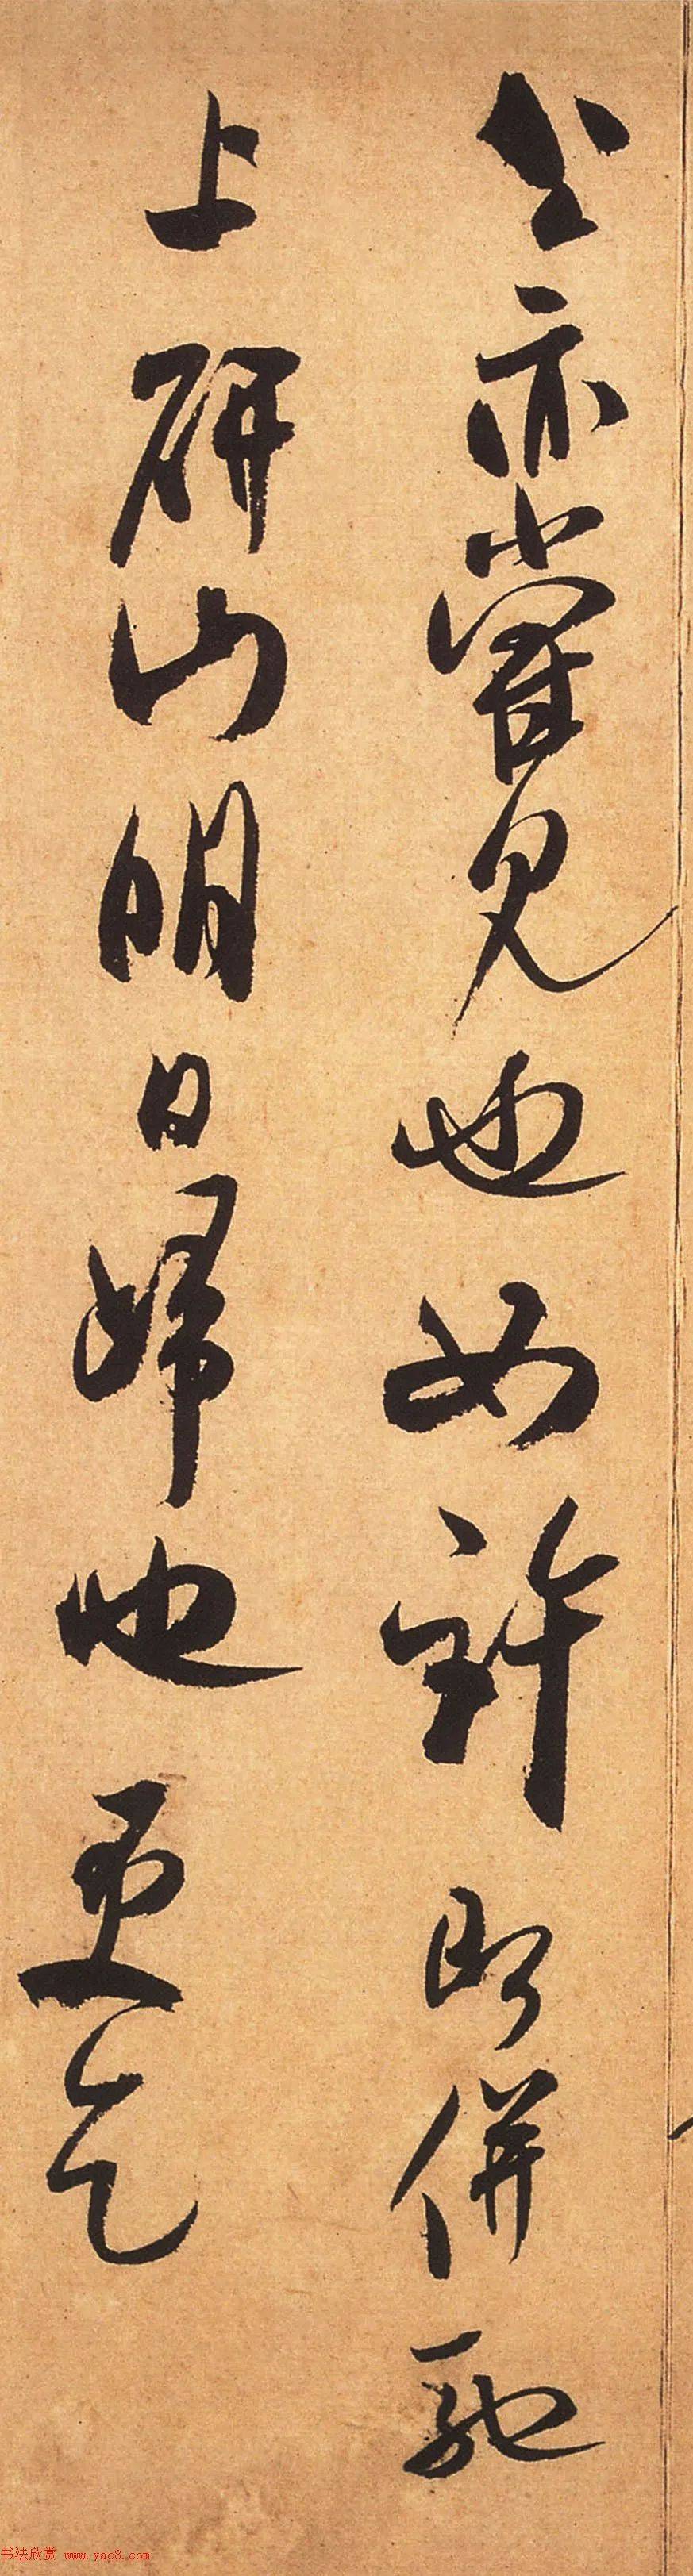 公亦嘗見也如許即併馳
上研山明日歸也更乞
书法欣赏 www.yac8.com